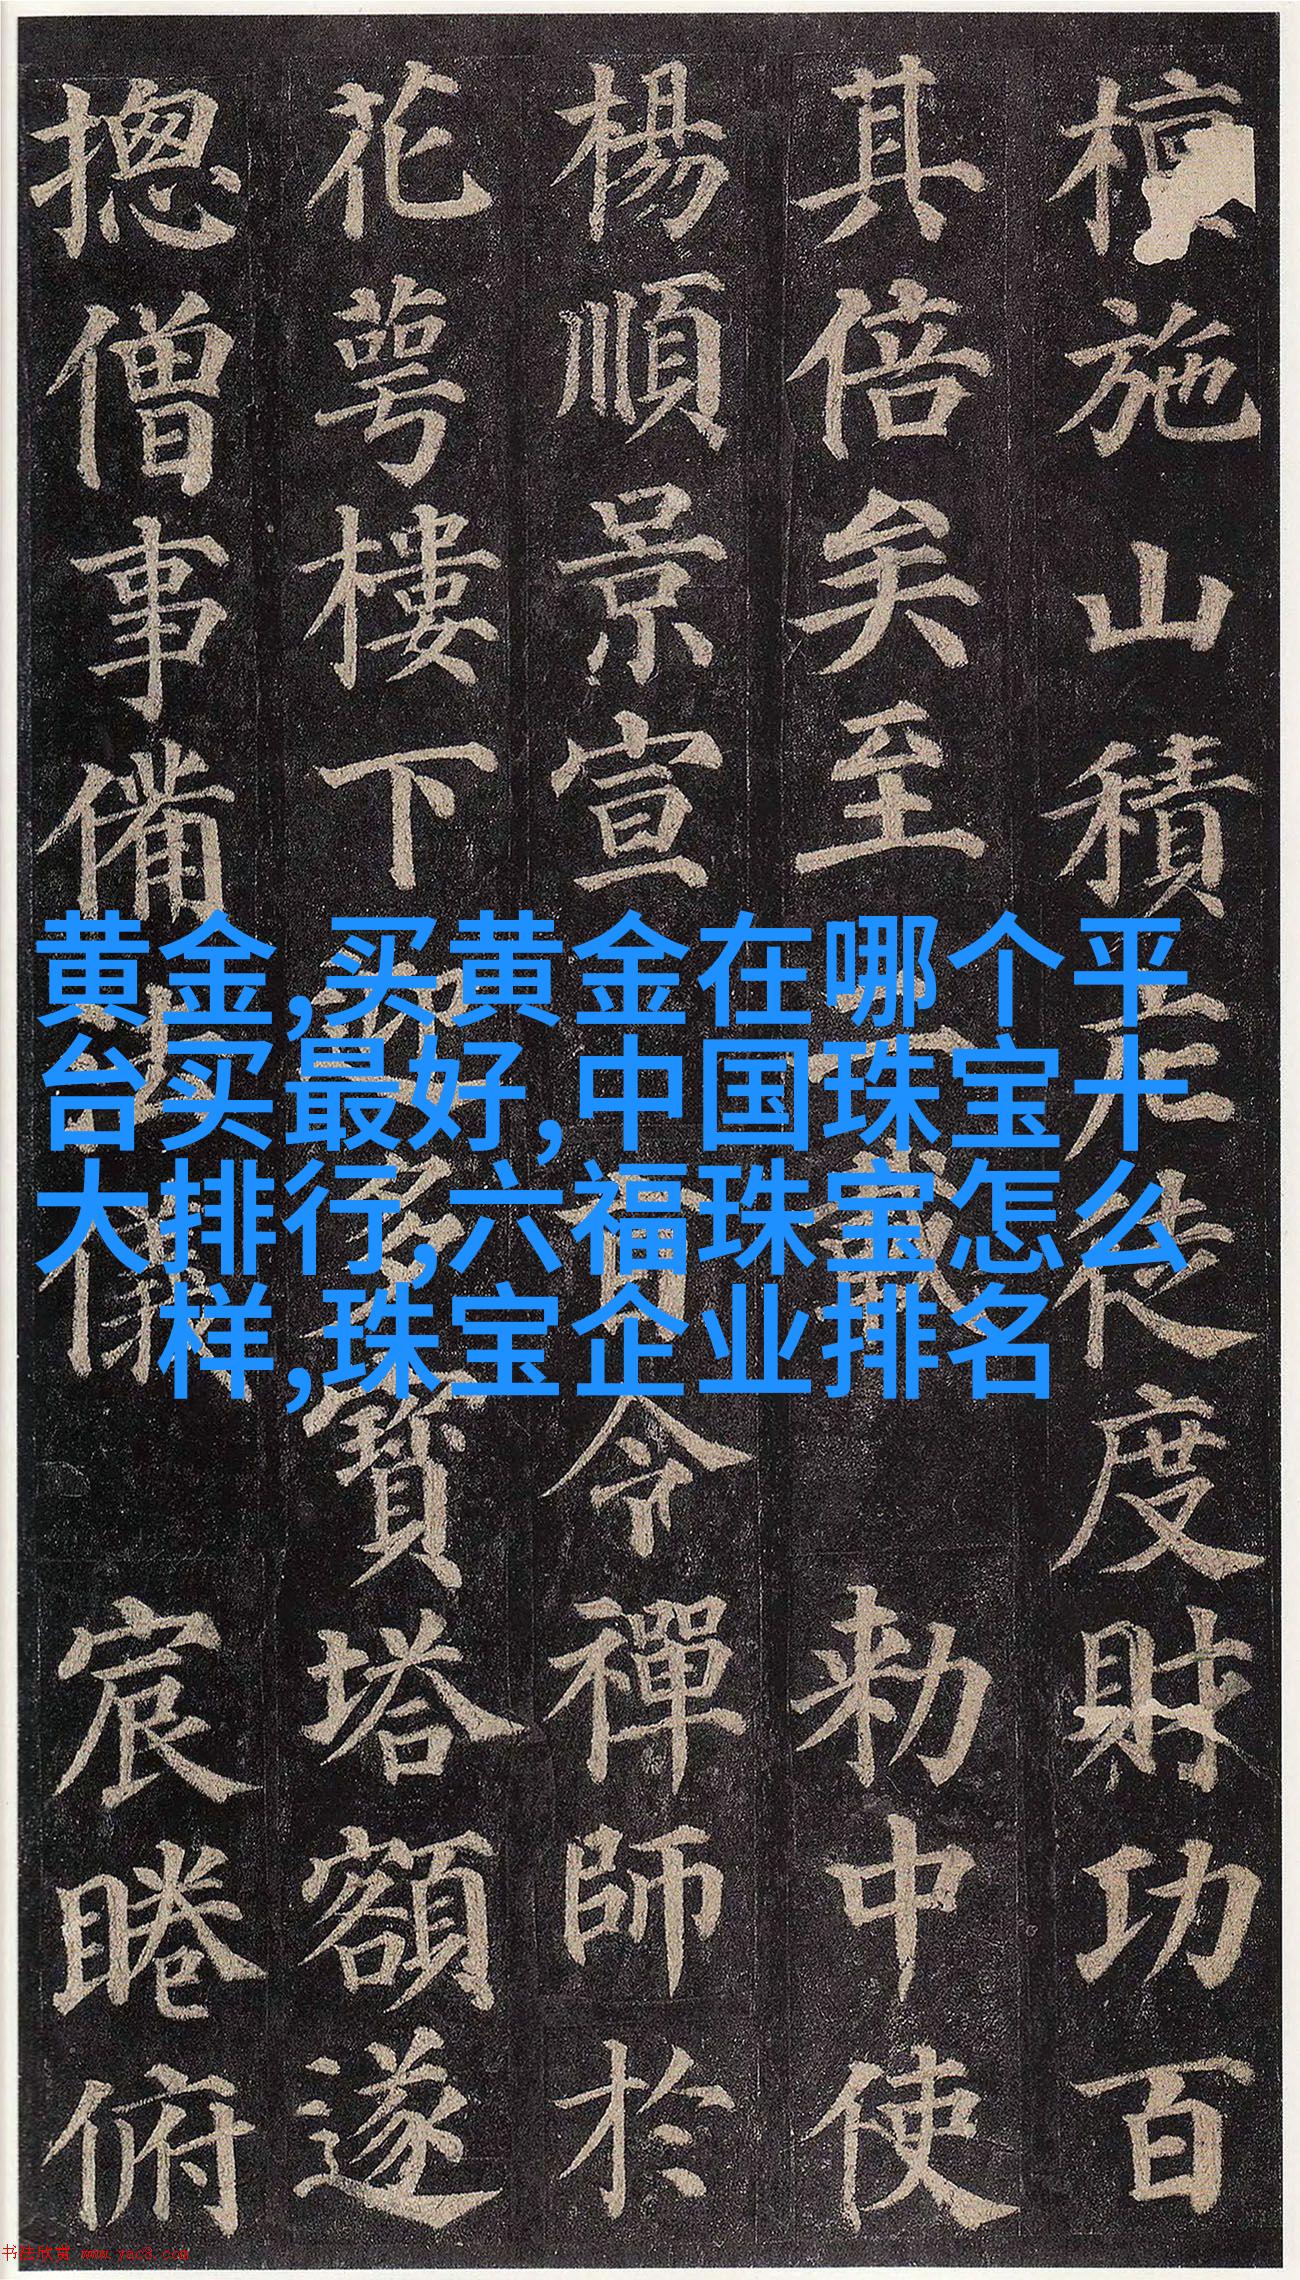 黄金,买黄金在哪个平
台买最好,中国珠宝十
大排行,六福珠宝怎么
样,珠宝企业排名
檀施山積庀徒度財功百
其倍矣至二載勅中使
楊順景宣旨令禪師於
花萼樓下迎多寶塔額遂
摠僧事備法儀宸睠俯
书法欣赏 www.yac3.com